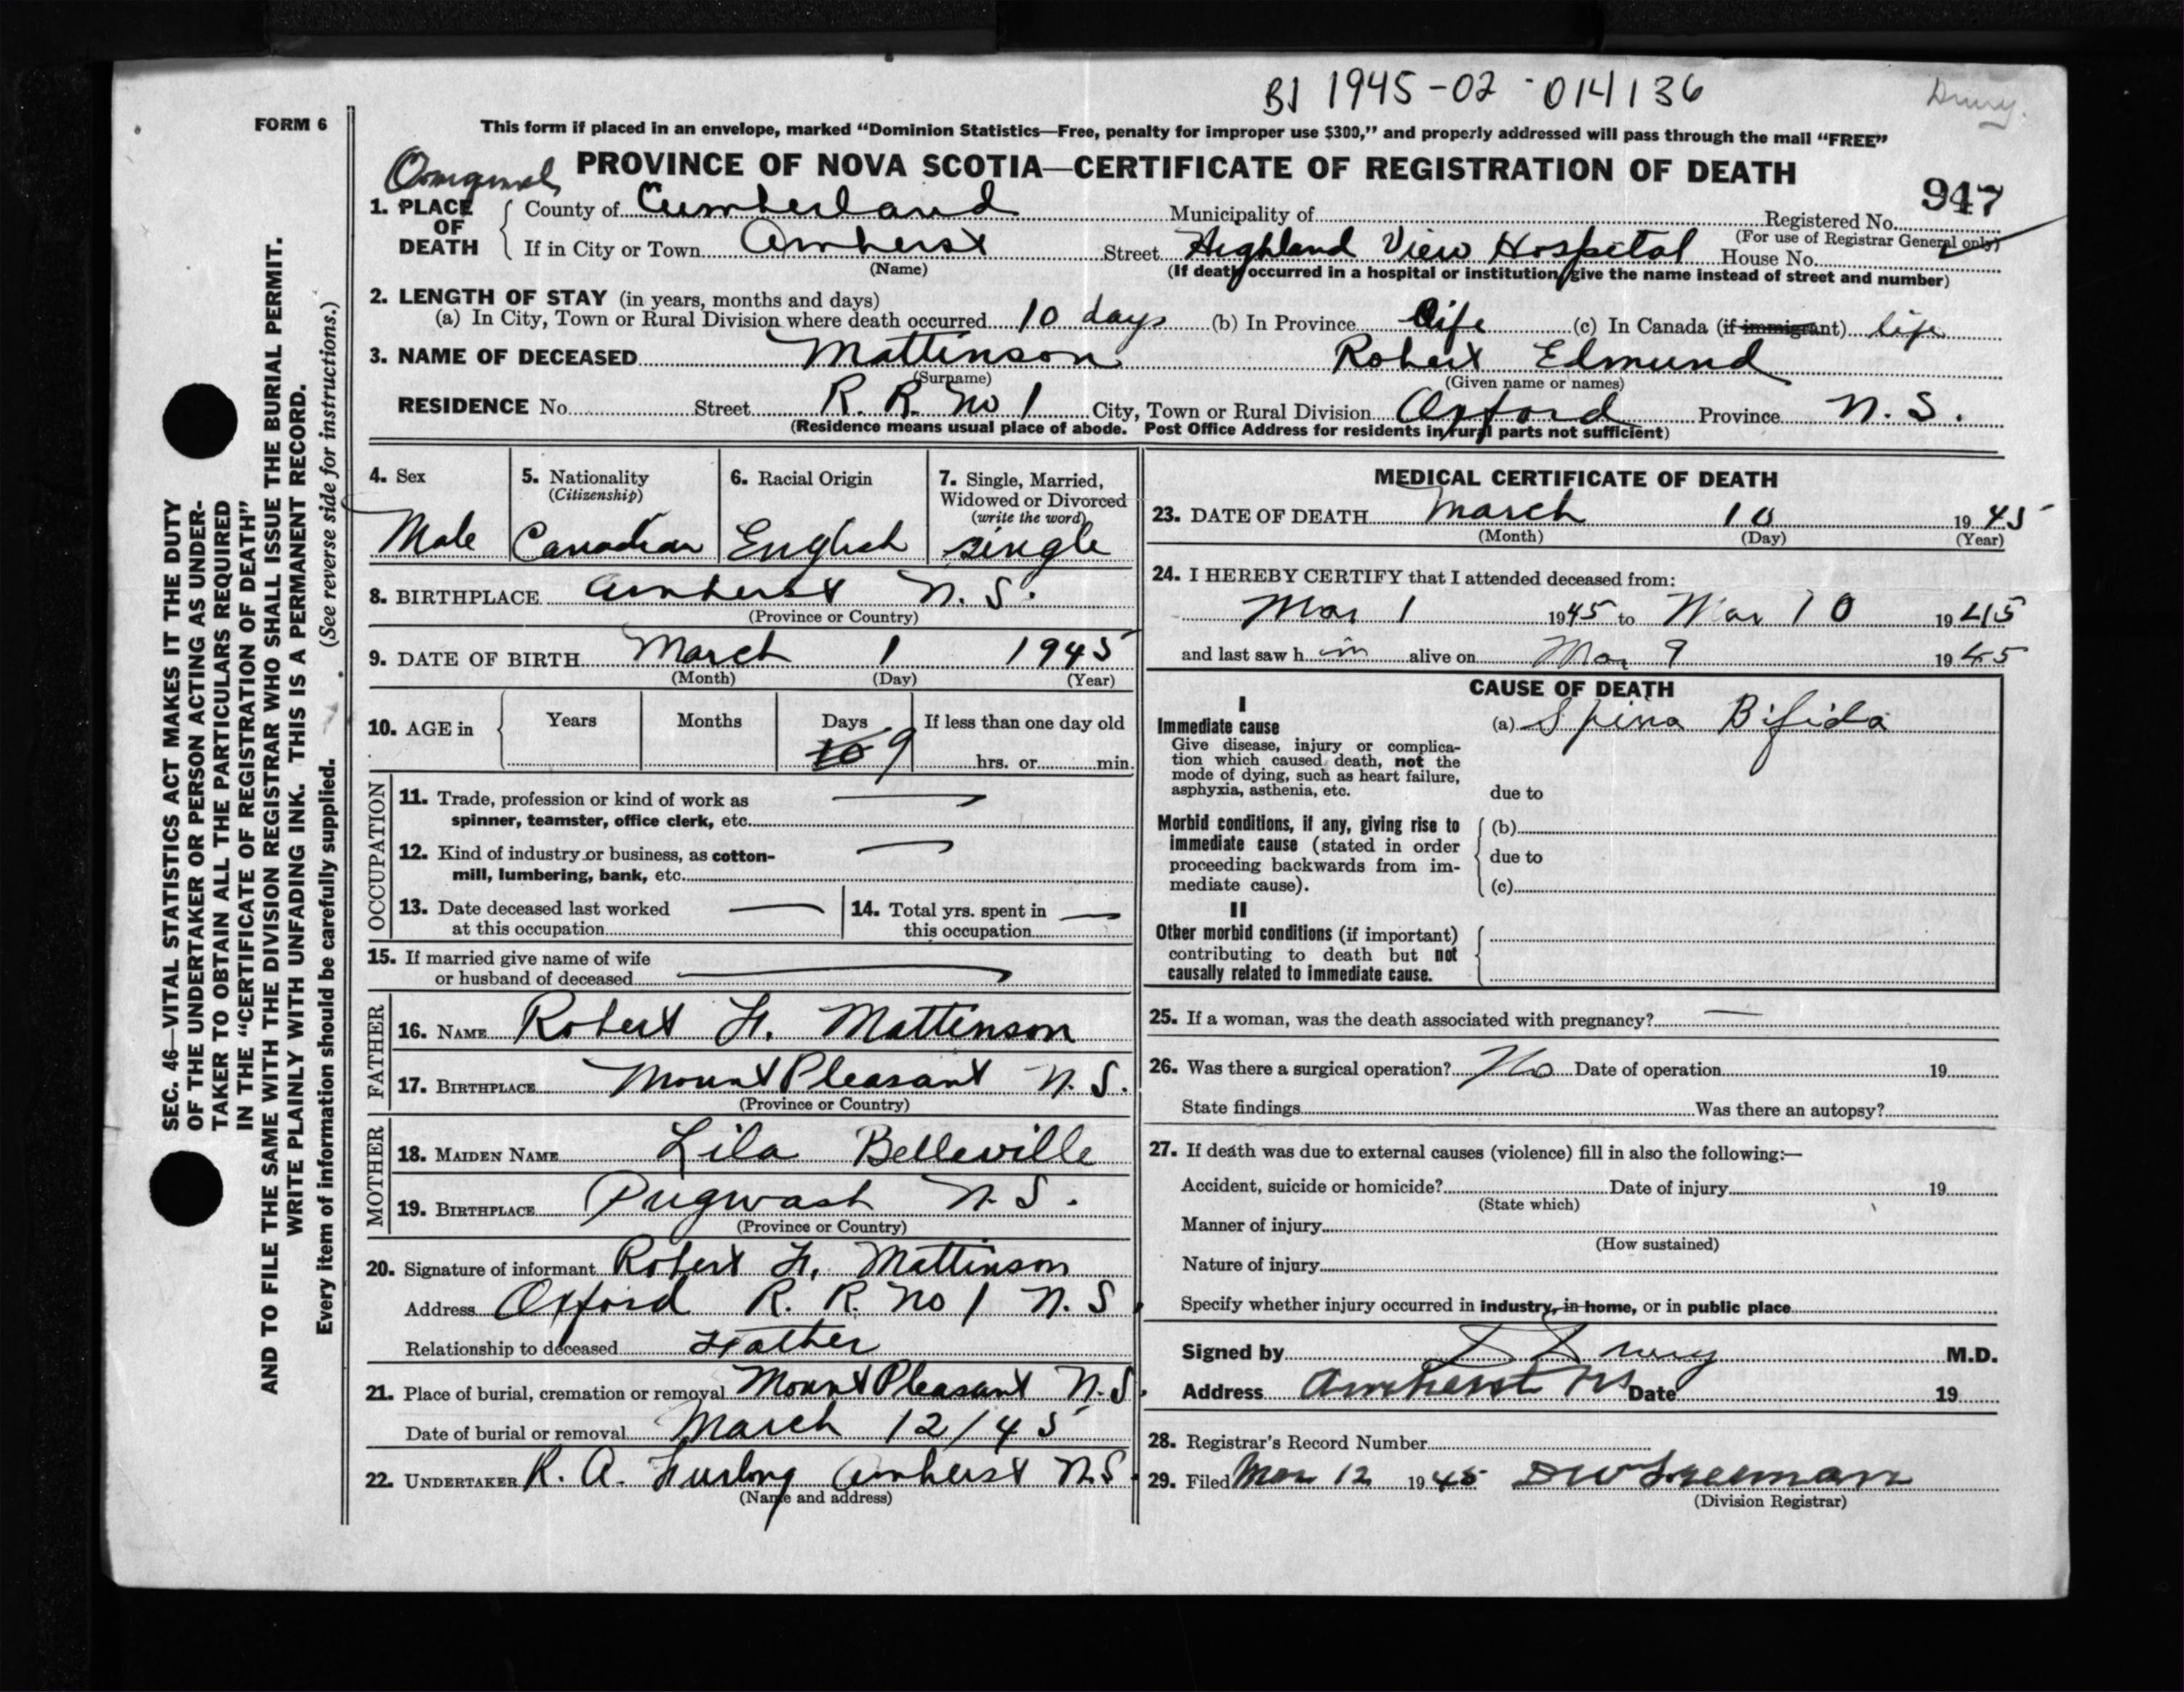 BJ 1945-02-014136
Drury.
FORM 6
This form if placed in an envelope, marked “Dominion Statistics—Free, penalty for improper use $300,” and properly addressed will pass through the mail “FREE”
PROVINCE OF NOVA SCOTIA—CERTIFICATE OF REGISTRATION OF DEATH
947
1. PLACE OF DEATH
County of Cumberland Municipality of Registered No.
(For use of Registrar General only)
If in City or Town Amherst Street Highland View Hospital House No.
(Name) (If death occurred in a hospital or institution give the name instead of street and number)
2. LENGTH OF STAY (in years, months and days)
(a) In City, Town or Rural Division where death occurred 10 days (b) In Province life (c) In Canada (if immigrant) life
3. NAME OF DECEASED Mattinson Robert Edmund
(Surname) (Given name or names)
RESIDENCE No. Street R. R. No 1 City, Town or Rural Division Oxford Province N. S.
(Residence means usual place of abode. Post Office Address for residents in rural parts not sufficient)
4. Sex
Male
5. Nationality
(Citizenship)
Canadian
6. Racial Origin
English
7. Single, Married,
Widowed or Divorced
(write the word)
single
8. BIRTHPLACE Amherst N. S.
(Province or Country)
9. DATE OF BIRTH March 1 1945
(Month) (Day) (Year)
10. AGE in Years Months Days If less than one day old
10 9 hrs. or min.
OCCUPATION
11. Trade, profession or kind of work as
spinner, teamster, office clerk, etc. —
12. Kind of industry or business, as cotton-
mill, lumbering, bank, etc. —
13. Date deceased last worked
at this occupation —
14. Total yrs. spent in
this occupation —
15. If married give name of wife
or husband of deceased —
FATHER
16. NAME Robert F. Mattinson
17. BIRTHPLACE Mount Pleasant N. S.
(Province or Country)
MOTHER
18. MAIDEN NAME Lila Belleville
19. BIRTHPLACE Pugwash N. S.
(Province or Country)
20. Signature of informant Robert F. Mattinson
Address Oxford R. R. No 1 N. S.
Relationship to deceased Father
21. Place of burial, cremation or removal Mount Pleasant N. S.
Date of burial or removal March 12/45
22. UNDERTAKER R. A. Furlong Amherst N. S.
(Name and address)
MEDICAL CERTIFICATE OF DEATH
23. DATE OF DEATH March 10 1945
(Month) (Day) (Year)
24. I HEREBY CERTIFY that I attended deceased from:
Mar 1 1945 to Mar 10 1945
and last saw h im alive on Mar 9 1945
CAUSE OF DEATH
I
Immediate cause
Give disease, injury or complica-
tion which caused death, not the
mode of dying, such as heart failure,
asphyxia, asthenia, etc.
(a) Spina Bifida
due to
Morbid conditions, if any, giving rise to
immediate cause (stated in order
proceeding backwards from im-
mediate cause).
(b)
due to
(c)
II
Other morbid conditions (if important)
contributing to death but not
causally related to immediate cause.
25. If a woman, was the death associated with pregnancy? —
26. Was there a surgical operation? No Date of operation 19
State findings Was there an autopsy?
27. If death was due to external causes (violence) fill in also the following:—
Accident, suicide or homicide? Date of injury 19
(State which)
Manner of injury
(How sustained)
Nature of injury
Specify whether injury occurred in industry, in home, or in public place
Signed by Drury M.D.
Address Amherst NS Date 19
28. Registrar's Record Number
29. Filed Mar 12 1945 D W Freeman
(Division Registrar)
SEC. 46—VITAL STATISTICS ACT MAKES IT THE DUTY
OF THE UNDERTAKER OR PERSON ACTING AS UNDER-
TAKER TO OBTAIN ALL THE PARTICULARS REQUIRED
IN THE “CERTIFICATE OF REGISTRATION OF DEATH”
AND TO FILE THE SAME WITH THE DIVISION REGISTRAR WHO SHALL ISSUE THE BURIAL PERMIT.
WRITE PLAINLY WITH UNFADING INK. THIS IS A PERMANENT RECORD.
Every item of information should be carefully supplied. (See reverse side for instructions.)